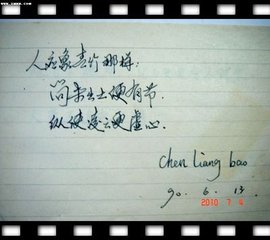 人应象青竹那样：
尚未出土便有节，
纵使凌云更虚心。
chen liang bao
90. 6. 13.
2010 7 4